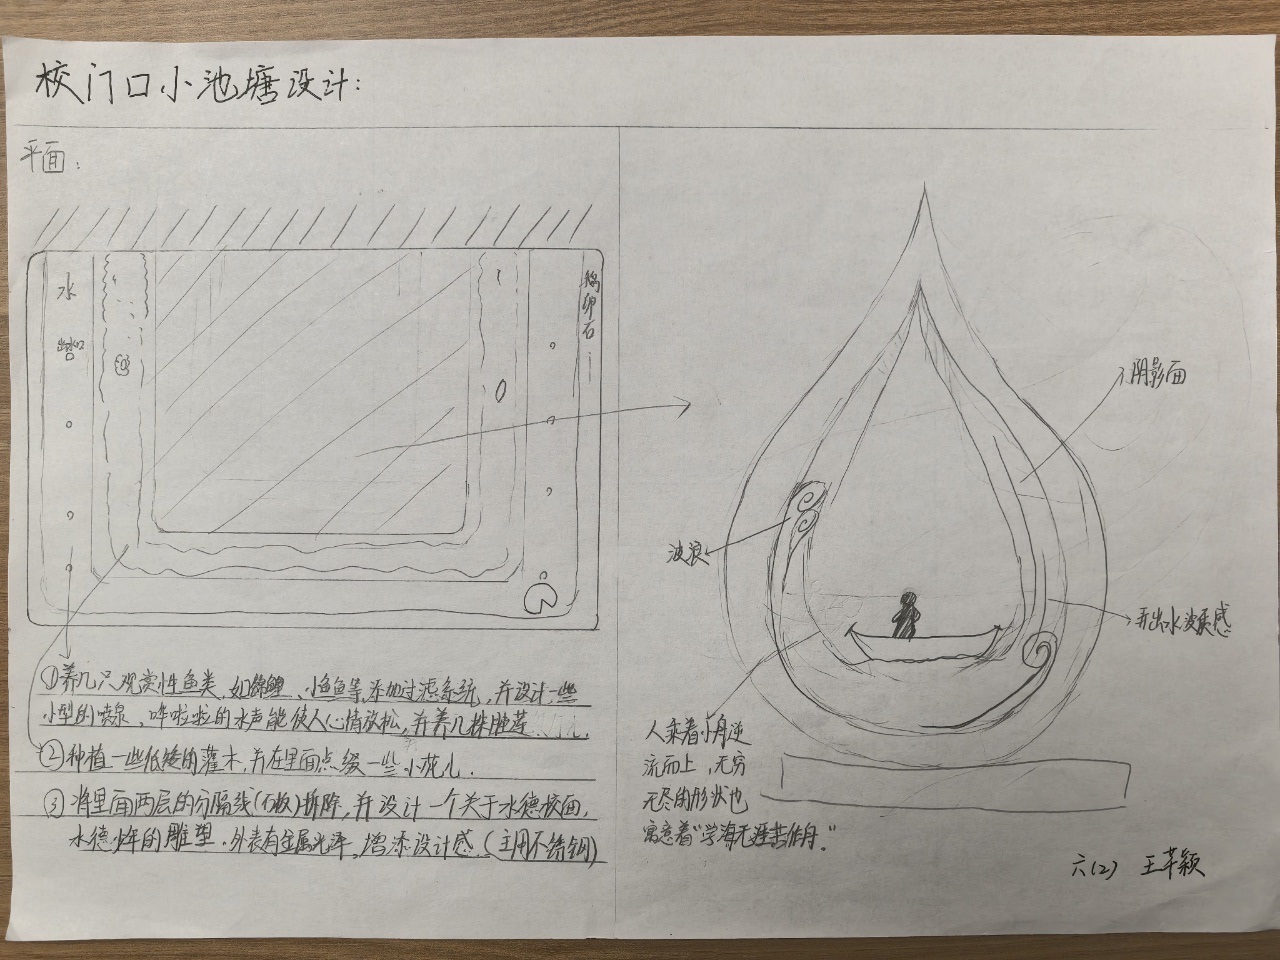 校门口小池塘设计:
平面:
水
鹅卵石
①养几只观赏性鱼类,如锦鲤、小鱼鱼等,添加过滤系统,并设计一些
小型的喷泉,哗啦啦的水声能使人心情放松,并养几株睡莲……
②种植一些低矮的灌木,并在里面点缀一些小花儿.
③将里面两层的分隔线(石板)拆除,并设计一个关于水德校园,
水德少年的雕塑.外表有金属光泽,增添设计感.(主用不锈钢)
阴影面
波浪
弄出水波质感
人乘着小舟逆
流而上,无穷
无尽的形状也
寓意着“学海无涯苦作舟."
六(2) 王芊颖